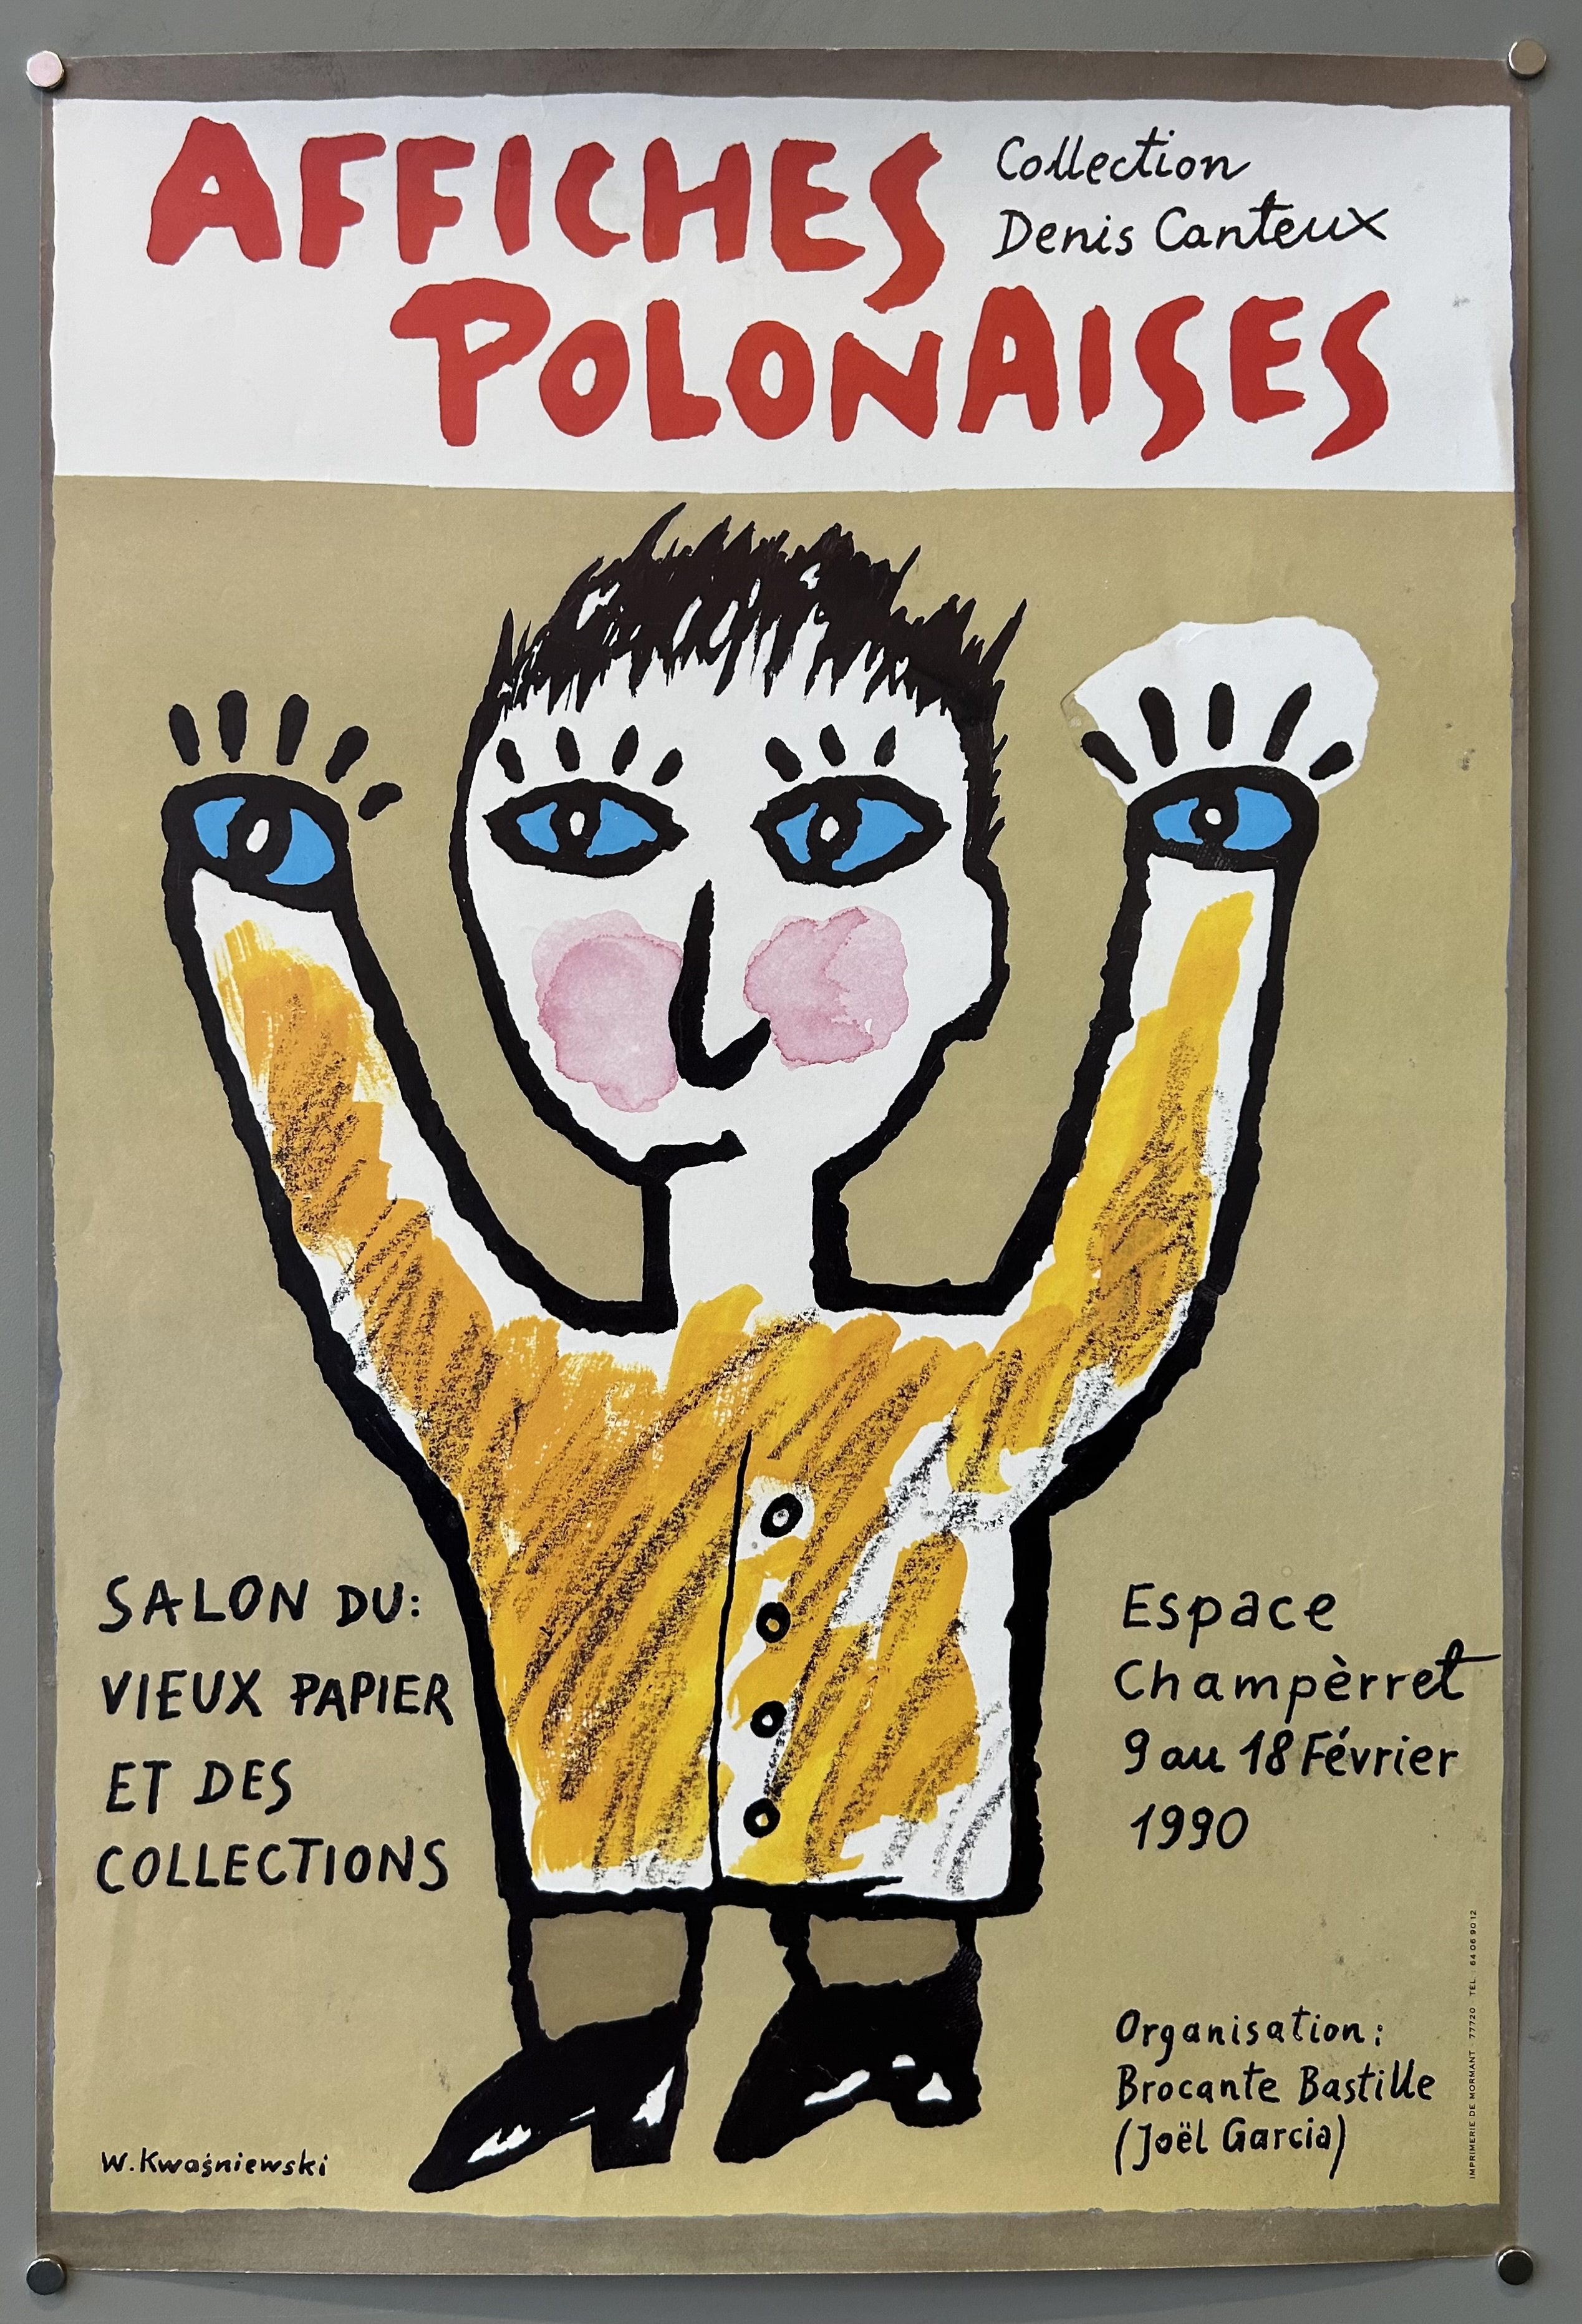 AFFICHES
POLONAISES
Collection
Denis Canteux
SALON DU:
VIEUX PAPIER
ET DES
COLLECTIONS
Espace
Champèrret
9 au 18 Février
1990
Organisation:
Brocante Bastille
(Joël Garcia)
W. Kwaśniewski
IMPRIMERIE DE MORMANT 77720 TEL. 64 06 90 12